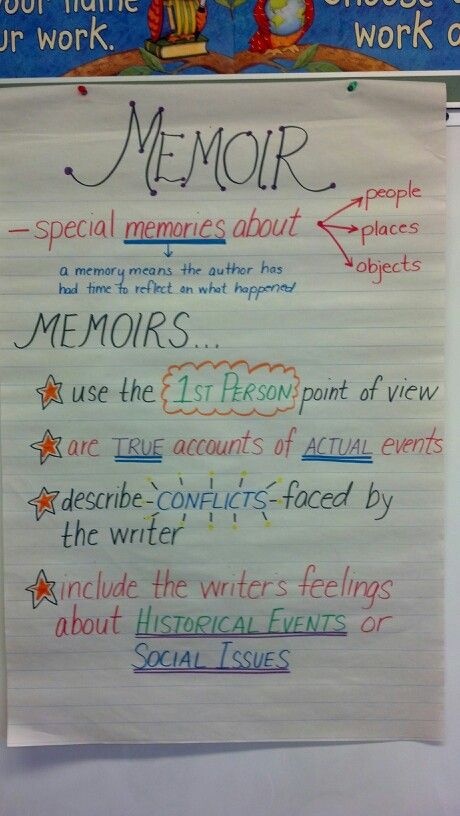 your name
ur work.
Choose
work o
MEMOIR
– special memories about
people
places
objects
a memory means the author has
had time to reflect on what happened
MEMOIRS...
use the 1ST PERSON point of view
are TRUE accounts of ACTUAL events
describe -CONFLICTS- faced by
the writer
include the writer's feelings
about HISTORICAL EVENTS or
SOCIAL ISSUES